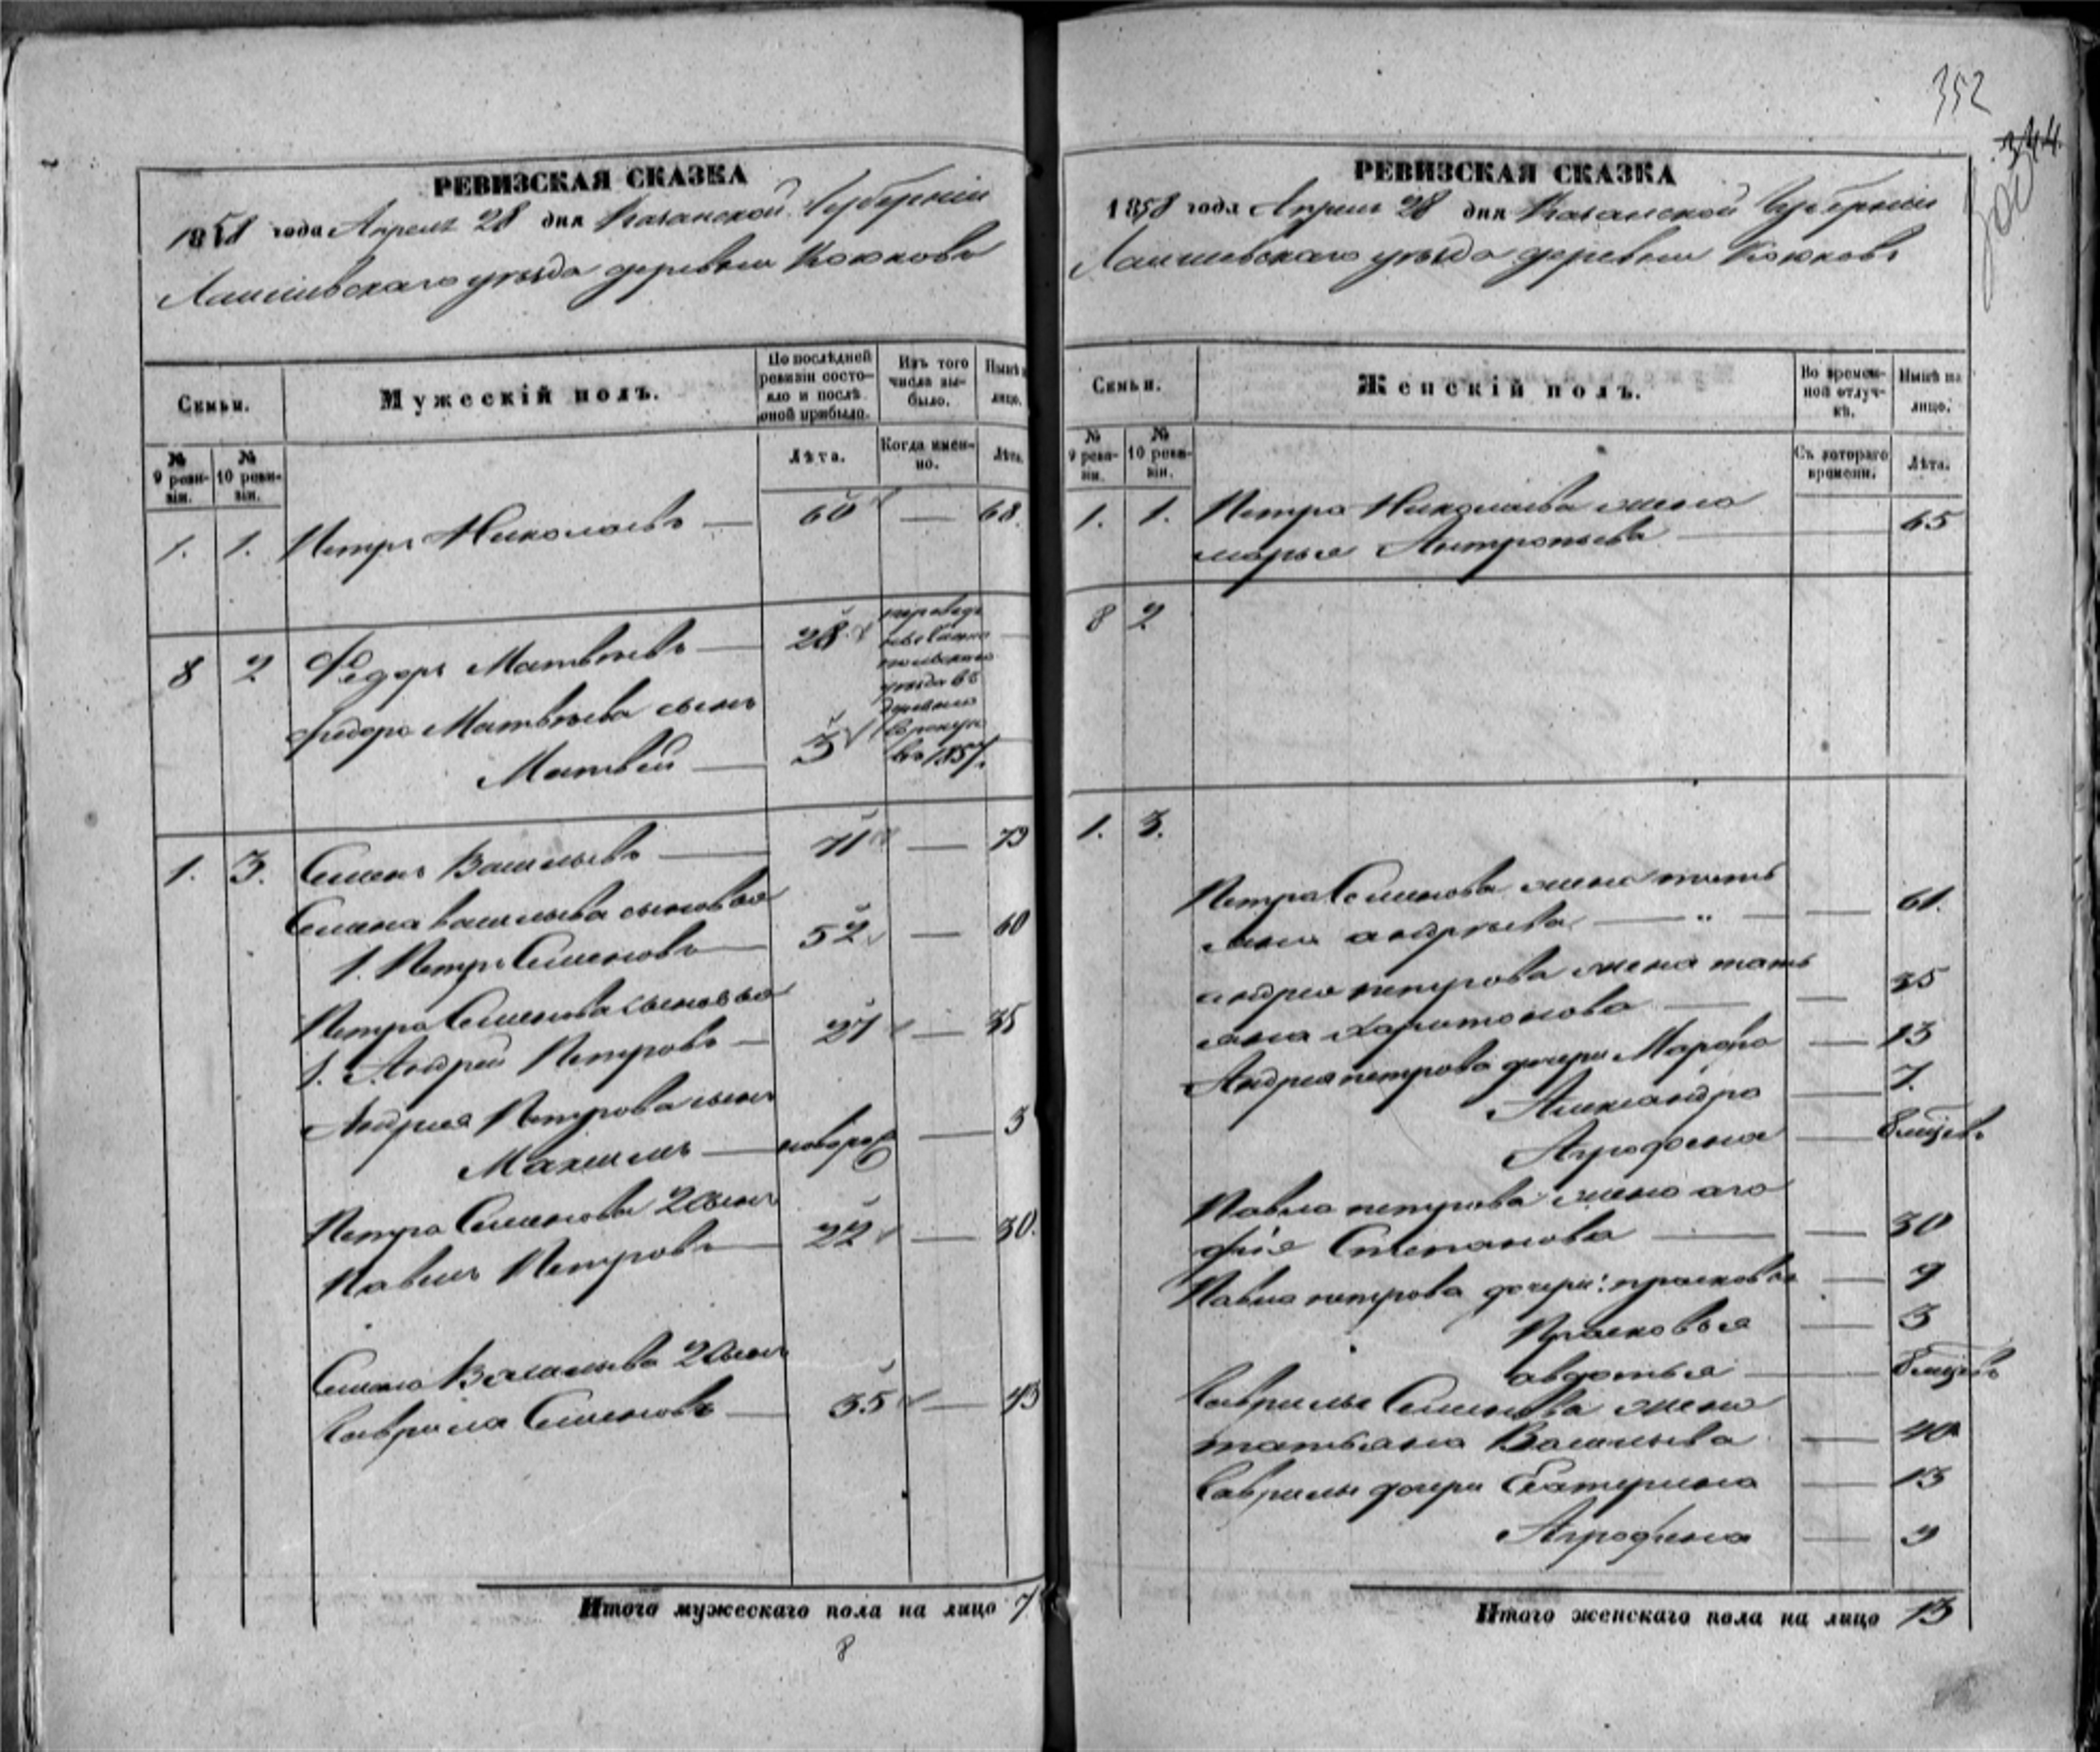 РЕВИЗСКАЯ СКАЗКА
1858 года Апреля 28 дня Казанской Губерніи
Лаишевскаго уезда деревни Кокков
Семьи.
Мужескій полъ.
По послѣдней ревизіи состо-
яло и послѣ оной прибыло.
Изъ того числа вы-
было.
Нынѣ на лицо.
№ 9 реви-
зіи.
№ 10 реви-
зіи.
Лѣта.
Когда имен-
но.
Лѣта.
1. 1. Петръ Николаевъ — 60 — 68.
8 2 Федоръ Матвѣевъ — 28
Федора Матвѣева сынъ
Матвей — 3
уезда въ
деревню
въ 1857.
1. 3. Семенъ Васильевъ — 71 — 79
Семена васильева сыновья
1. Петръ Семеновъ — 52 — 60
Петра Семенова сыновья
1. Андрей Петровъ — 27 — 35
Андрея Петрова сынъ
Максимъ — новорож — 3
Петра Семенова 2 сынъ
Павелъ Петровъ — 22 — 30.
Семена Васильева 2 сынъ
Гаврила Семеновъ — 35 — 43
Итого мужескаго пола на лицо 7
8
352
344.
РЕВИЗСКАЯ СКАЗКА
1858 года Апреля 28 дня Казанской Губерніи
Лаишевскаго уезда деревни
Семьи.
Женскій полъ.
Во времен-
ной отлуч-
кѣ.
Нынѣ на лицо.
№ 9 реви-
зіи.
№ 10 реви-
зіи.
Съ котораго времени.
Лѣта.
1. 1. Петра Николаева жена
марья Антропьева — 65
8 2
1. 3.
Петра Семенова жена тать
яна андреева — " — 61.
андрея петрова жена тать
яна харитонова — 35
Андрея петрова дочери Марфа — 13
Александра — 7.
Аграфена — 8 мцевъ
Павла петрова жена ага
фія Степанова — 30
Павла петрова дочери: прасковья — 9
Прасковья — 3
авдотья — 8 мцевъ
Гаврилы Семенова жена
татьяна Васильева — 40
Гаврилы дочери Екатерина — 13
Аграфена — 9
Итого женскаго пола на лицо 13